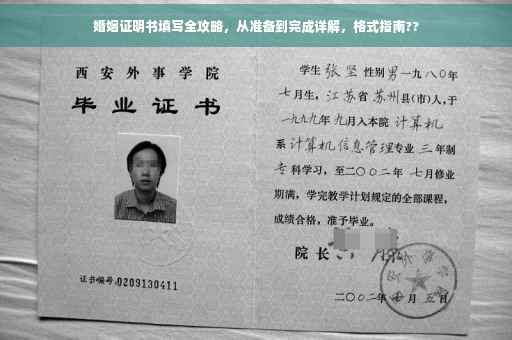 婚姻证明书填写全攻略，从准备到完成详解，格式指南??
西安外事学院
毕业证书
证书编号:0209130411
学生 张坚 性别 男 一九八〇年
七月生，江苏省苏州县(市)人,于
一九九九年九月入本院 计算机
系 计算机信息管理专业 三年制
专科学习，至二〇〇二年 七月修业
期满，学完教学计划规定的全部课程，
成绩合格，准予毕业。
院长
二〇〇二年 七月 五日